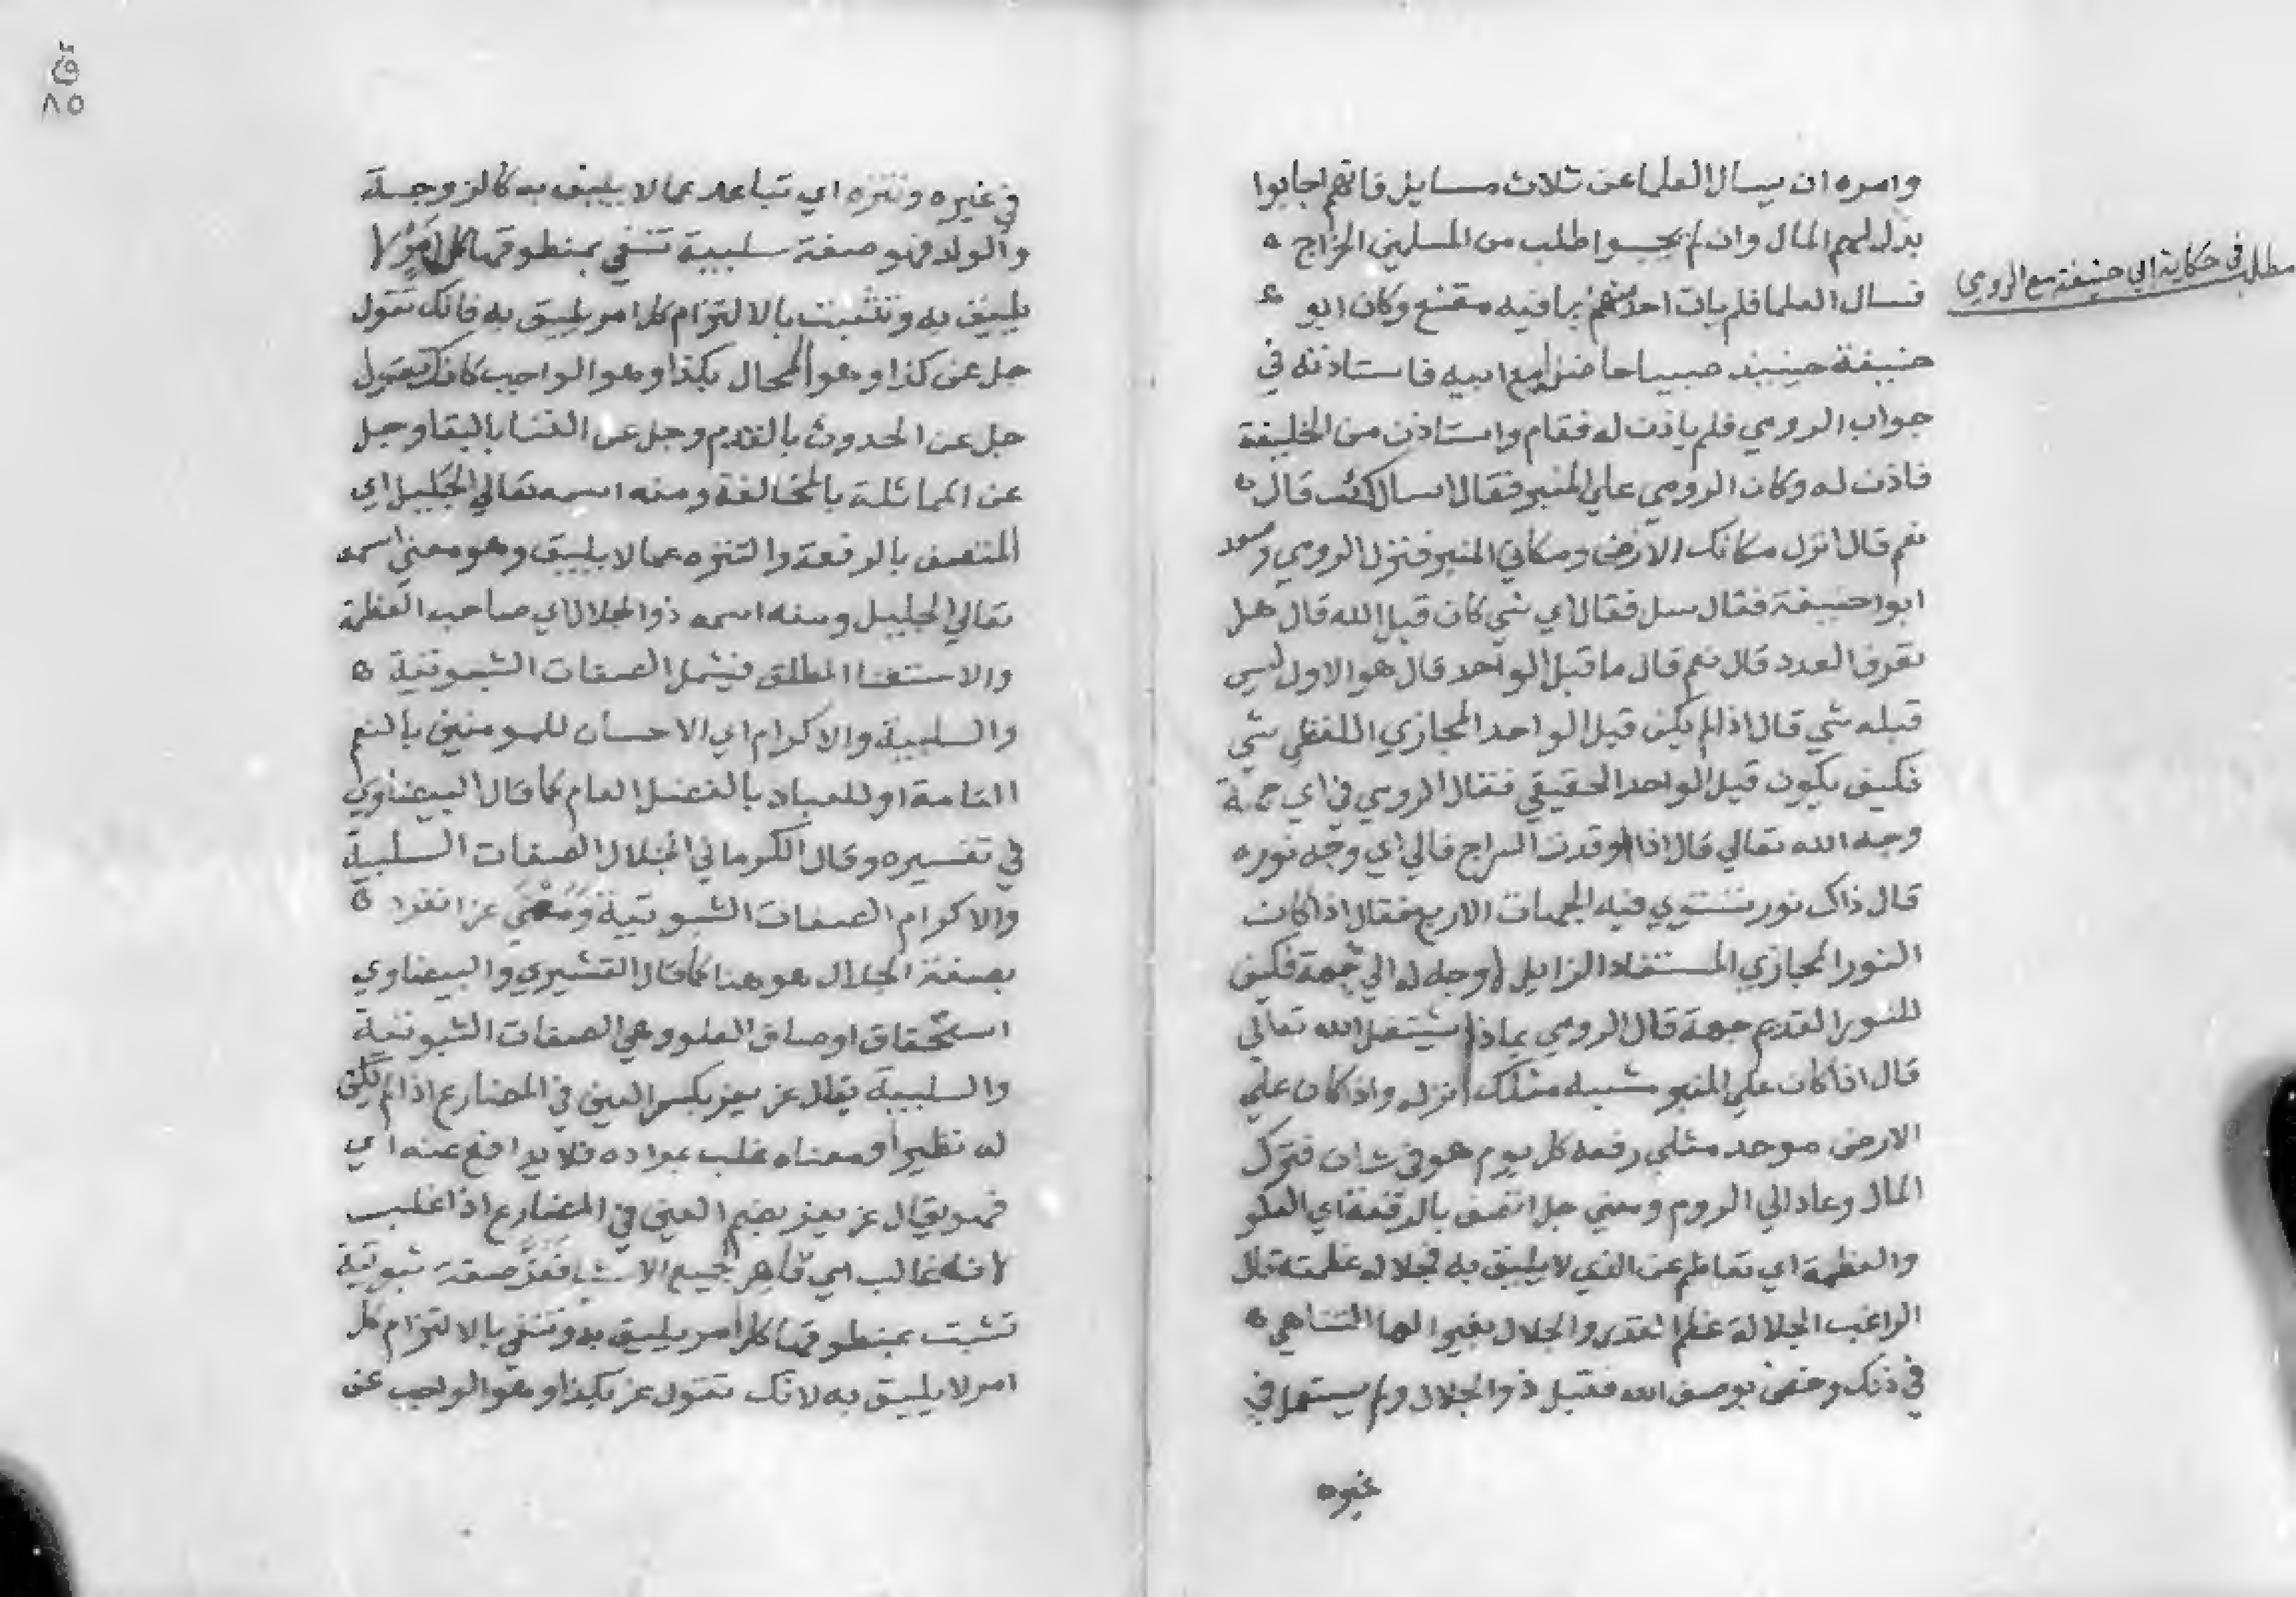 وامره ان يسال العلما عن ثلاث مسايل فانهم اجابوا
بدل لهم المال وان لم يجيبوا طلب من المسلمين الخراج ه
فسال العلما فلم يات احد منهم بما فيه مقنع وكان ابو
حنيفة حينيذ صبيا حاضرا مع ابيه فاستاذنه في
جواب الرومي فلم ياذن له فقام واستاذن من الخليفة
فاذن له وكان الرومي علي المنبر فقال اسال انت قال
نعم قال انزل مكانك الارض ومكاني المنبر فنزل الرومي وصعد
ابوا حنيفة فقال سل فقال اي شي كان قبل الله قال هل
تعرف العدد قال نعم قال ما قبل الواحد قال هو الاول ليس
قبله شي قال اذا لم يكن قبل الواحد المجازي اللفظي شي
فكيف يكون قبل الواحد الحقيقي فقال الرومي في اي جهة
وجه الله تعالي قال اذا اوقدت السراج فالي اي وجه نوره
قال ذاك نور تستوي فيه الجهات الاربع فقال اذا كان
النور المجازي المستفاد الزايل لا وجه له الي جهة فكيف
للنور القديم جهة قال الرومي بماذا يشتغل الله تعالي
قال اذا كان علي المنبر مشبه مثلك انزله واذا كان علي
الارض موحد مثلي رفعه كل يوم هو في شان فترك
المال وعاد الي الروم ومعني جل اتصف بالرفعة اي العلو
والعظمة اي تعاظم عن الذي لا يليق به فجلاله عظمته قال
الراغب الجلالة عظم القدر والجلال بغير الها التناهي ه
في ذلك وخص بوصف الله فقيل ذو الجلال ولم يستعمل في
غيره
مطلب في حكاية ابي حنيفة مع الرومي
ق
٨٥
في غيره وتنزه اي تباعد عما لا يليق به كالزوجة
والولد فهو صفة سلبية تنفي بمنطوقها كل امر لا
يليق به وتثبت بالالتزام كل امر يليق به فانك تقول
جل عن كذا وهو المحال بكذا وهو الواجب كانك تقول
جل عن الحدوث بالقدم وجل عن الفنا بالبقا وجل
عن المماثلة بالمخالفة ومنه اسمه تعالي الجليل اي
المتصف بالرفعة والتنزه عما لا يليق وهو معني اسمه
تعالي الجليل ومنه اسمه ذو الجلال اي صاحب العظمة
والاستغنا المطلق فيشمل الصفات الثبوتية ه
والسلبية والاكرام اي الاحسان للمومنين بالنعم
التامة او للعباد بالفضل العام كما قال البيضاوي
في تفسيره وقال الكرماني الجلال الصفات السلبية
والاكرام الصفات الثبوتية ومعني عز انفرد ه
بصفة الجلال هو هنا كما قال القشيري والبيضاوي
استحقاق اوصاف العلو وهي الصفات الثبوتية
والسلبية يقال عز يعز بكسر العين في المضارع اذا لم يكن
له نظير او معناه غلب بمراده فلا يدافع عنه اي
فهو يقال عز يعز بضم العين في المضارع اذا غلب
لانه غالب اي قاهر لجميع الاشيا فعز صفة ثبوتية
تثبت بمنطوقها كل امر يليق به وتنفي بالالتزام كل
امر لا يليق به لانك تقول عز بكذا وهو الواجب عن